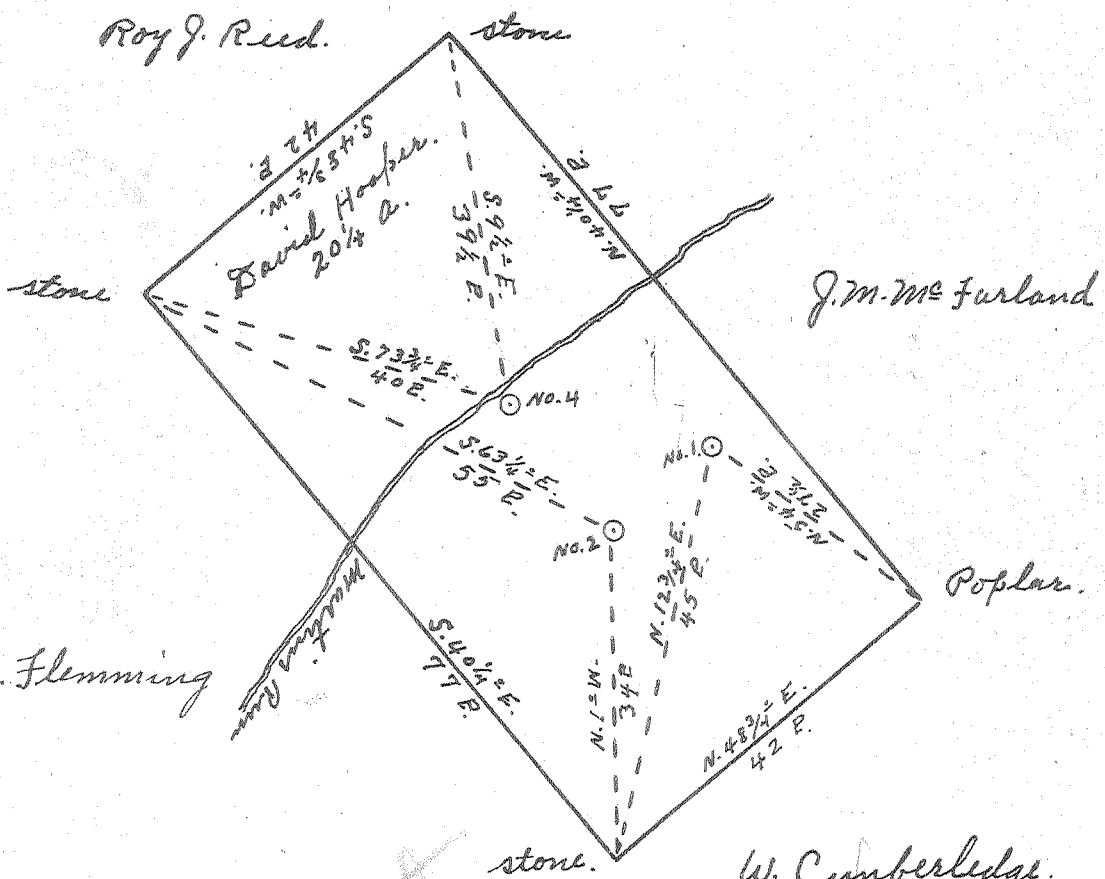 Roy J. Reed.
stone
42 P.
S. 48 3/4 = W.
David Hooper.
20 1/4 a.
S 9 1/2 = E.
39 1/2 P.
N. 40 1/4 = W.
77 P.
stone
J. M. Mc Farland
S. 73 3/4 = E.
40 P.
No. 4
No. 1.
S. 63 1/4 = E.
55 P.
No. 2
N. 54 = W.
27 1/2 P.
N. 12 3/4 = E.
45 P.
Poplar.
Martins Run
. Flemming
S. 40 1/4 = E.
77 P.
N. 1 = W.
34 P
N. 48 3/4 = E.
42 P.
stone.
W. Cumberledge.